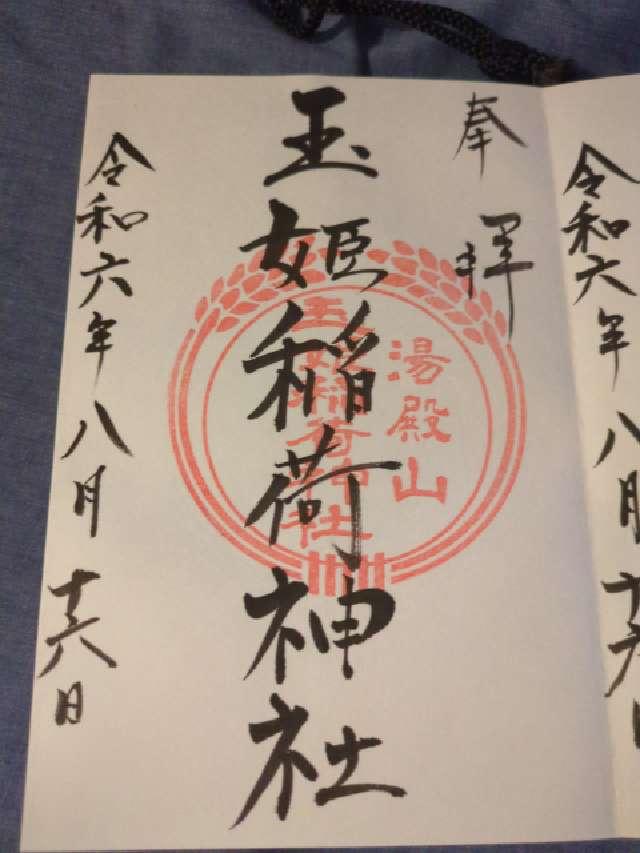 令和六年八月十六日
奉拝
玉姫稲荷神社
湯殿山
玉姫稲荷神社
令和六年八月十六日